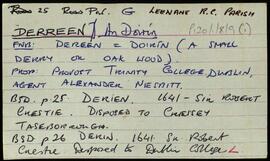 25 G LEENANE R.C. PARISH
DERREEN / An Doirín
P120/18/9 (1)
ENG: DEREEN = DOIRÍN (A SMALL
DERRY OR OAK WOOD).
PROP: PROVOST TRINITY COLLEGE, DUBLIN,
AGENT ALEXANDER NESBITT.
BSD. p 25 DERIEN. 1641 - SIR ROBERT
CRESTIE. DISPOSED TO
BSD p 26 DERIN. 1641. Sir Robert
Crestie Disposed to Dublin College